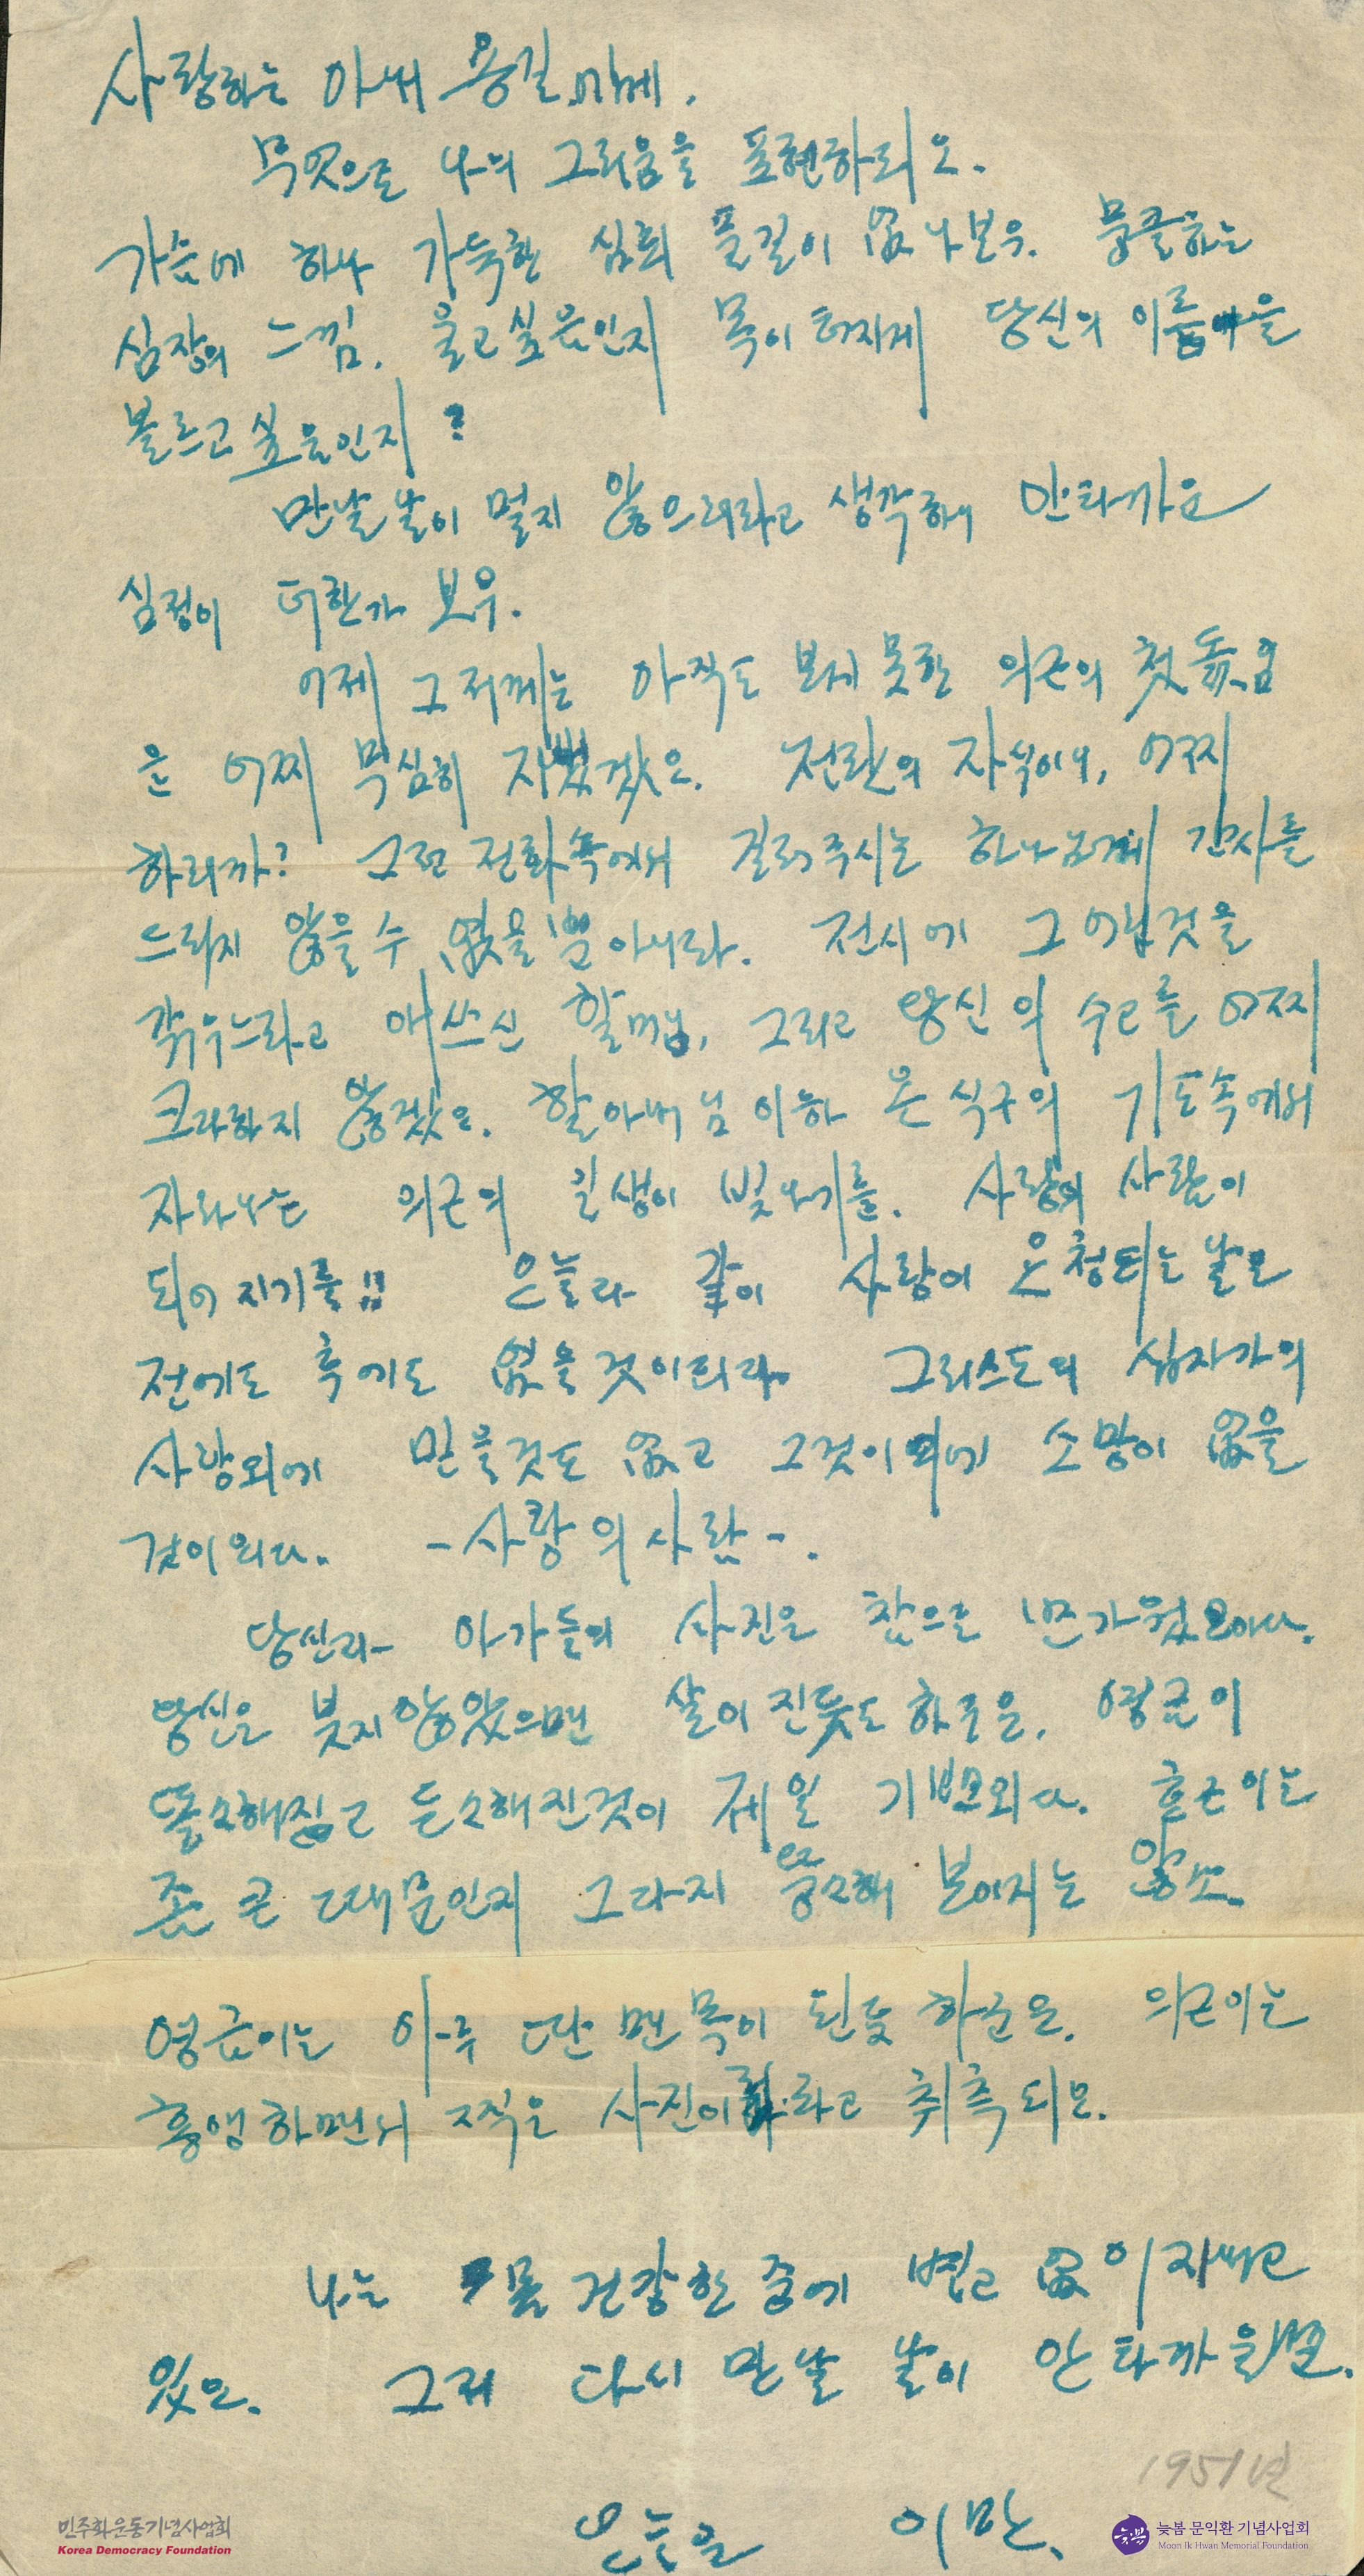 사랑하는 아내 용길에게.
무엇으로 나의 그리움을 표현하리오.
가슴에 하나 가득한 심회 풀길이 없나보우. 뭉클하는
심장의 느낌. 울고싶음인지 목이 터지게 당신의 이름을
불르고 싶음인지?
만날 날이 멀지 않으리라고 생각하니 안타까운
심정이 더한가 보우.
어제 그저께는 아직도 보지 못한 의근의 첫돐
은 어찌 무심히 지냈겠오. 전란의 자식이니, 어찌
하리까? 그런 전화속에서 길러주시는 하나님께 감사를
드리지 않을수 없을 뿐아니라. 전시에 그 어린것을
키우느라고 애쓰신 할머님, 그리고 당신의 수고를 어찌
크다하지 않겠오. 할아버님 이하 온식구의 기도속에서
자라나는 의근의 일생이 빛나기를. 사랑의 사람이
되어지기를!! 오늘과 같이 사랑이 요청되는 날은
전에도 후에도 없을것이외다. 그리스도의 십자가의
사랑외에 믿을것도 없고 그것이외에 소망이 없을
것이외다. -사랑의 사람-.
당신과 아가들의 사진은 참으로 반가웠오이다.
당신은 붓지않았으면 살이 진듯도 하구요. 영금이
똘々해지고 든々해진것이 제일 기쁘외다. 호근이는
좀 큰 때문인지 그다지 똥々해 보이지는 않소.
영금이는 아주 딴 면목이 된듯 하군요. 의근이는
흥앵하면서 찍은 사진이라고 취측되오.
나는 몸 건강한 중에 변고 없이 지내고
있오. 그저 다시 만날 날이 안타까울뿐.
오늘은 이만.
1951년
민주화운동기념사업회
Korea Democracy Foundation
늦봄
늦봄 문익환 기념사업회
Moon Ik Hwan Memorial Foundation